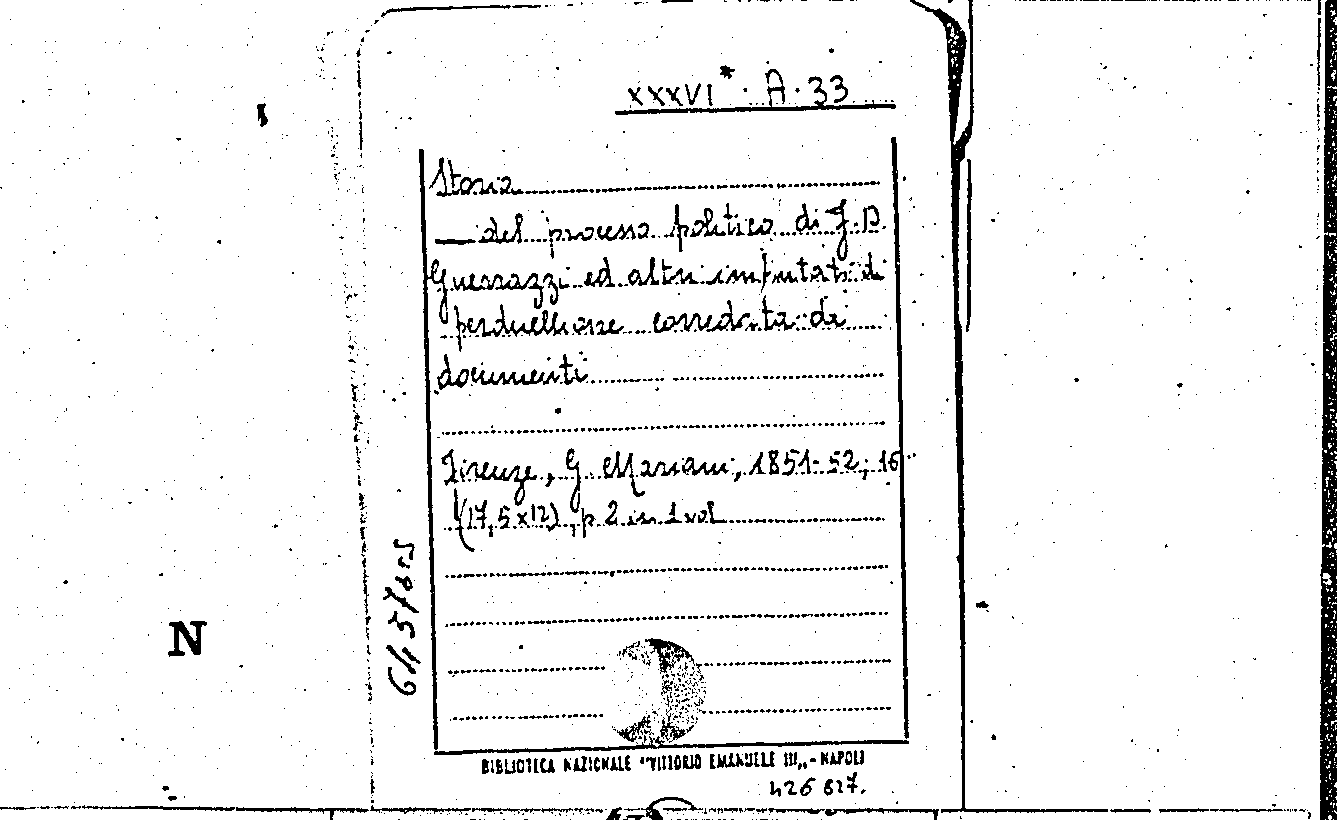 XXXVI* · A · 33
Storia
— del processo politico di F. D.
Guerrazzi ed altri imputati di
perduellione corredata di
documenti
Firenze, G. Mariani, 1851-52; 16°
(17,5x12), p 2 in 1 vol
N
BIBLIOTECA NAZIONALE "VITTORIO EMANUELE III„ - NAPOLI
426 827.